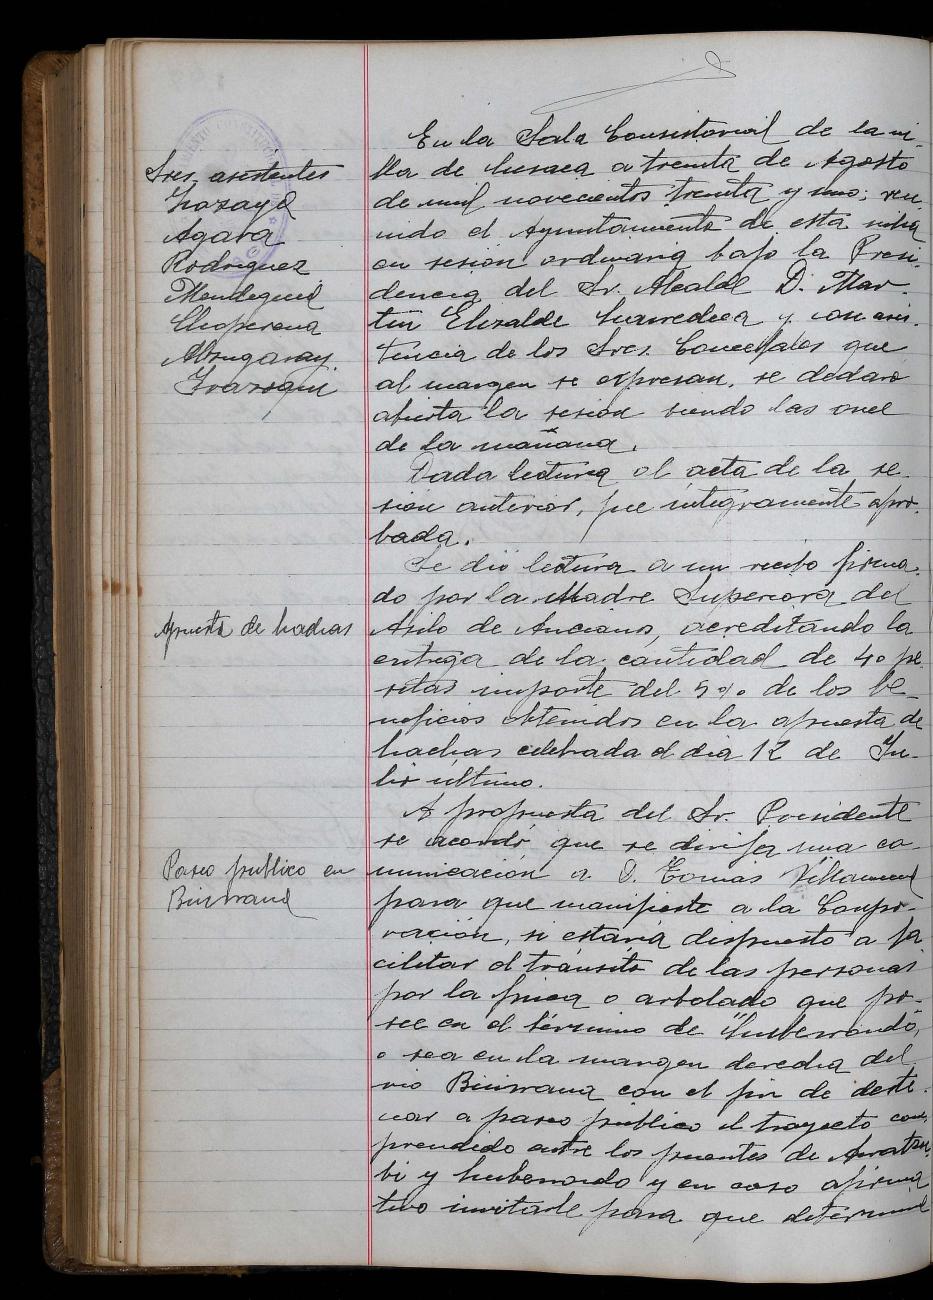 En la Sala Consistorial de la vi-
lla de Lesaca a treinta de Agosto
de mil novecientos treinta y uno; reu-
nido el Ayuntamiento de esta villa
en sesión ordinaria bajo la Presi-
dencia del Sr. Alcalde D. Mar-
tin Elizalde y con asis-
tencia de los Sres. Concejales que
al margen se expresan, se declaró
abierta la sesión siendo las once
de la mañana.
Sres. asistentes
Agara
Rodriguez
Mendeguia
Choperena
Irazoqui
Dada lectura al acta de la se-
sión anterior, fue íntegramente apro-
bada.
Apuesta de hachas
Se dió lectura a un recibo firma-
do por la Madre Superiora del
Asilo de Ancianos, acreditando la
entrega de la cantidad de 40 pe-
setas importe del 5% de los be-
neficios obtenidos en la apuesta de
hachas celebrada el dia 12 de Ju-
lio último.
Paseo publico en
Biurrana
A propuesta del Sr. Presidente
se acordó que se dirija una co-
municación a D. Tomas
para que manifieste a la Corpo-
ración, si estaria dispuesto a fa
cilitar el tránsito de las personas
por la finca o arbolado que po-
see en el término de
o sea en la margen derecha del
rio Biurrana con el fin de desti-
nar a paseo publico el trayecto com-
prendido entre los puentes de Arratzu-
bi y y en caso afirma
tivo invitarle para que determine